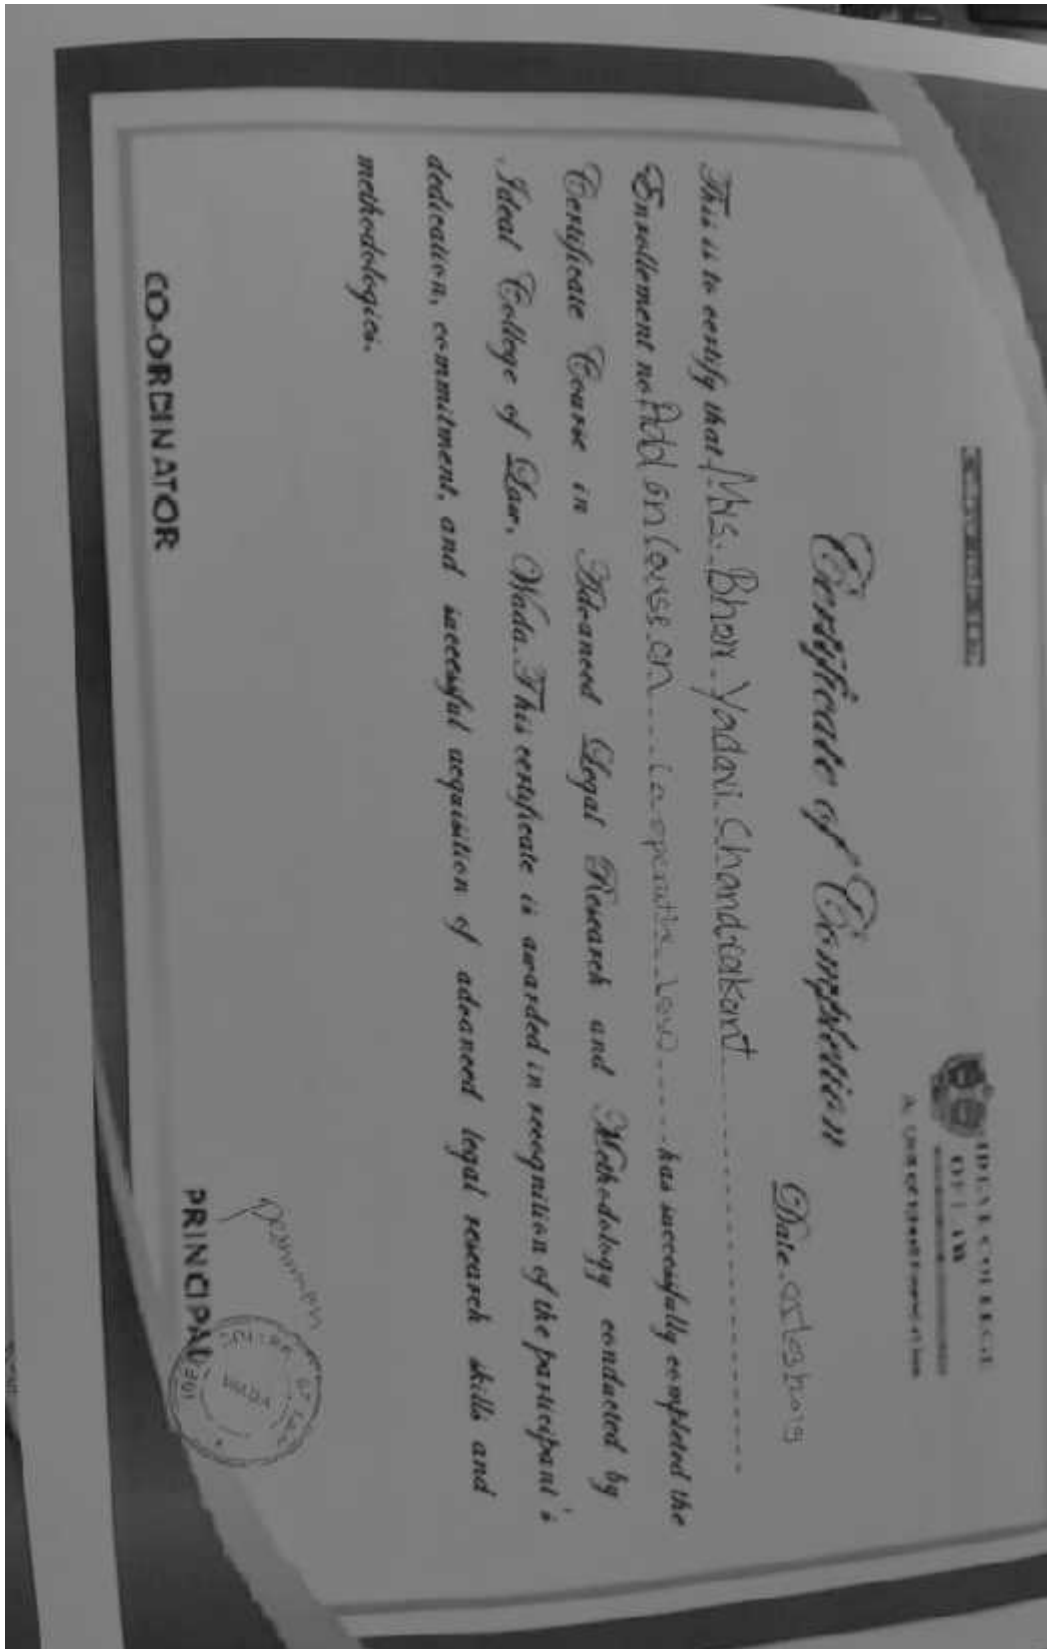 IDEAL COLLEGE
OF LAW
Certificate of Completion
Date
This is to certify that Mrs. Bhor Yadavi Chandrakant
Enrollement no. Add on Course on Co-operative Law has successfully completed the
Certificate Course in Advanced Legal Research and Methodology conducted by
Ideal College of Law, Wada. This certificate is awarded in recognition of the participant's
dedication, commitment, and successful acquisition of advanced legal research skills and
methodologies.
CO-ORDINATOR
PRINCIPAL
IDEAL COLLEGE OF LAW
WADA